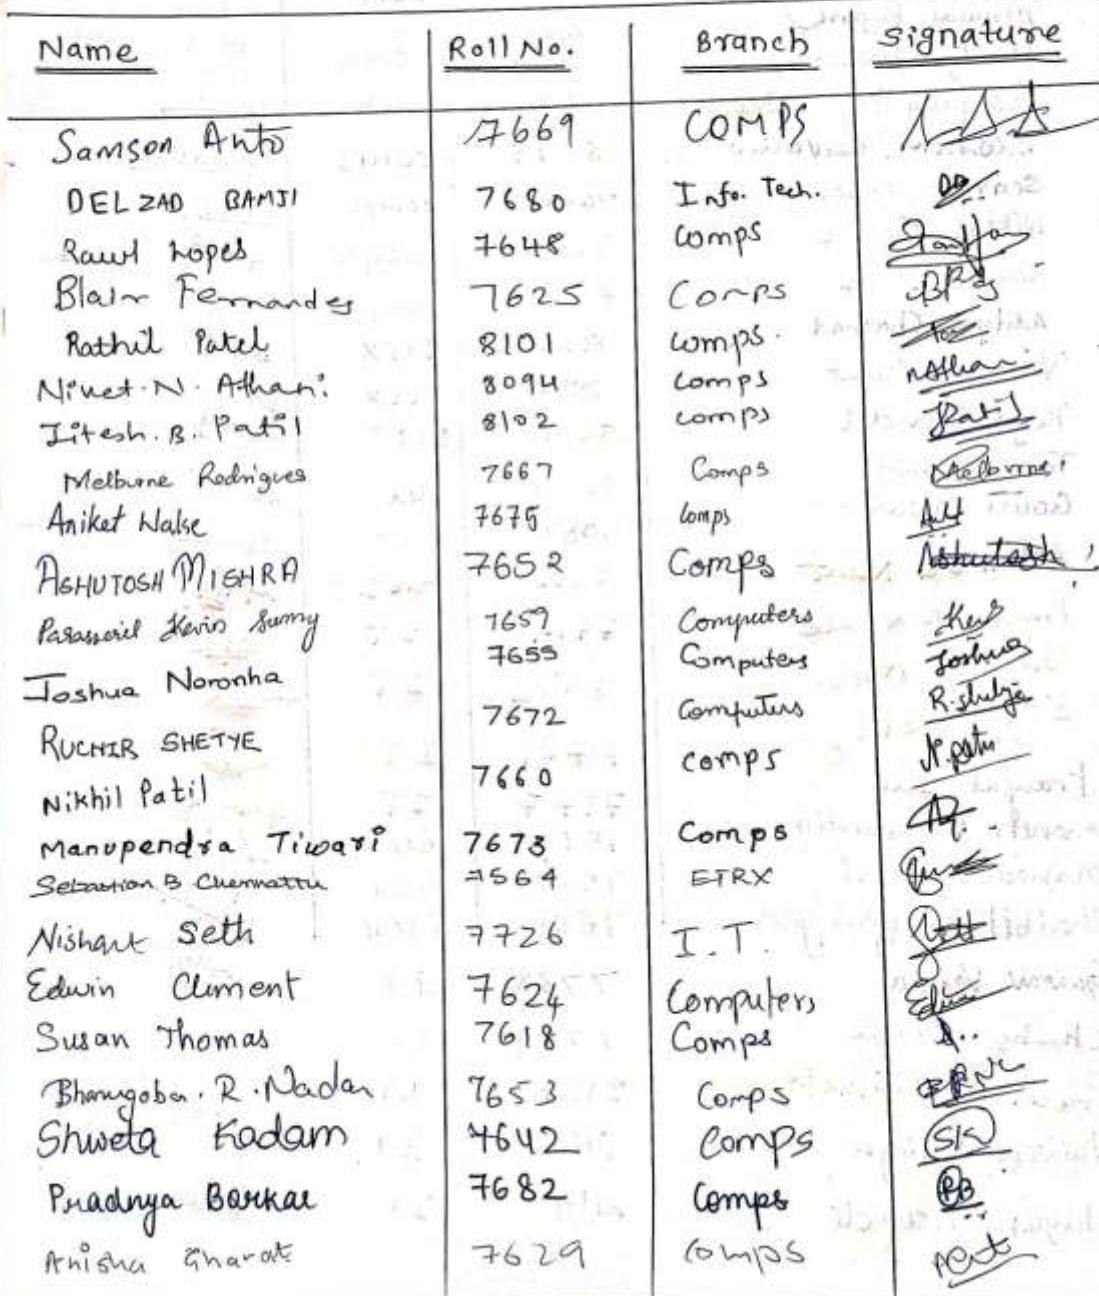 Name Roll No. Branch Signature
Samson Anto 7669 COMPS
DELZAD BAMJI 7680 Info. Tech. DB
Raul Lopes 7648 Comps
Blair Fernandes 7625 Comps
Rathil Patel 8101 comps.
Nivet.N. Athani. 8094 comps nAthani
Jitesh.B. Patil 8102 comps JPatil
Melburne Rodrigues 7667 Comps Melburne
Aniket Walse 7675 Comps
ASHUTOSH MISHRA 7652 Comps Ashutosh
Kevin Sunny 7659 Computers
Joshua Noronha 7655 Computers Joshua
RUCHIR SHETYE 7672 Computers R.shetye
Nikhil Patil 7660 comps N.patil
Manupendra Tiwari 7673 Comps
Sebastian B Chennattu 7564 ETRX
Nishant Seth 7726 I.T.
Edwin Clement 7624 Computers Edwin
Susan Thomas 7618 Comps
R. Nadar 7653 Comps BRN
Shweta Kadam 7642 Comps SK
Pradnya Borkar 7682 Comps PB
Anisha Gharat 7629 comps